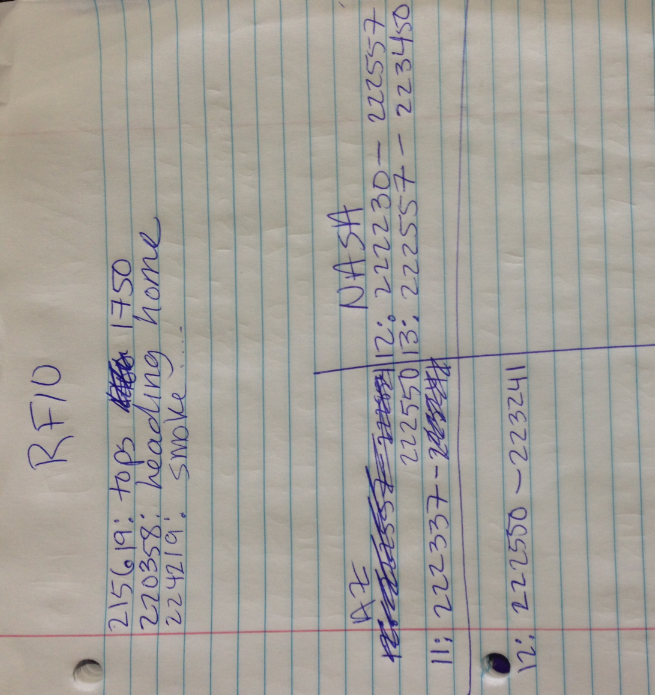 RF10
215619: tops 1750
220358: heading home
224219: smoke....
AZ
222550
11: 222337 -
12: 222550 - 223241
NASA
12: 222230 - 222557
13: 222557 - 223450